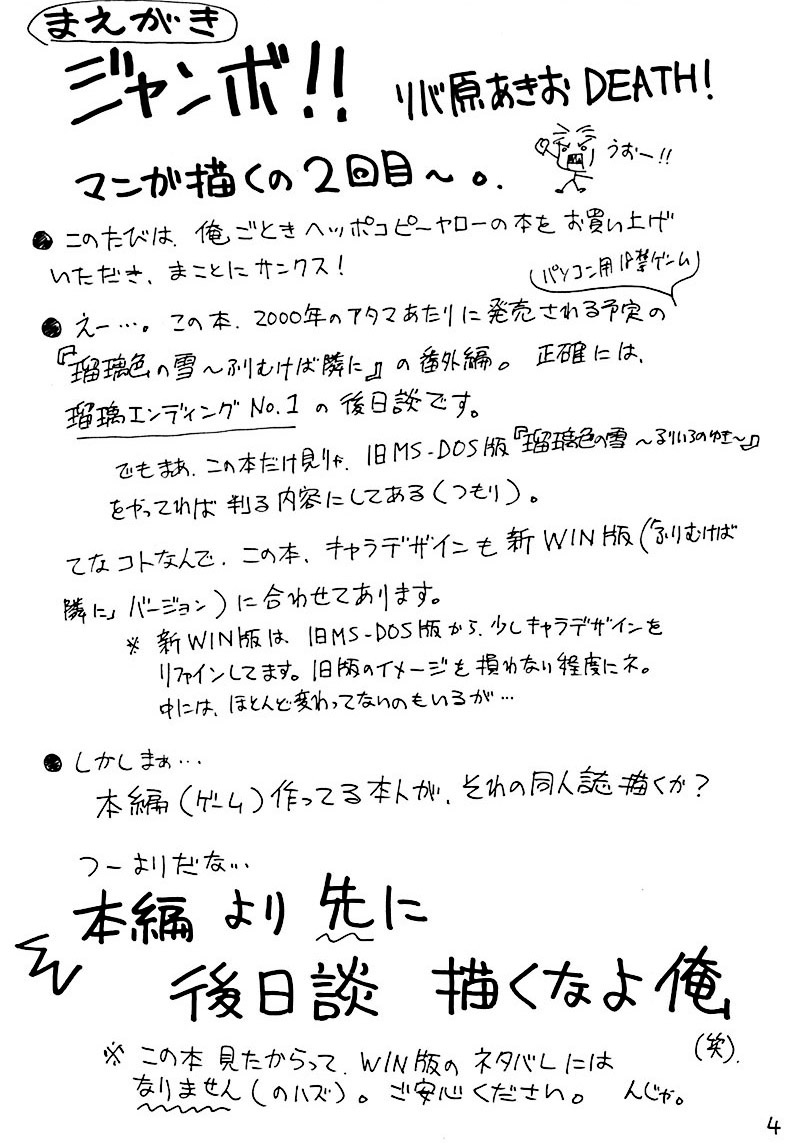 まえがき
ジャンボ!!
リバ原あきお DEATH!
マンガ描くの2回目～。
うおー!!
●このたびは、俺ごときヘッポコピーヤローの本をお買い上げ
いただき、まことにサンクス!
(パソコン用18禁ゲーム)
●えー…。この本、2000年のアタマあたりに発売される予定の
『瑠璃色の雪～ふりむけば隣に』の番外編。正確には、
瑠璃エンディングNo.1の後日談です。
でもまあ、この本だけ見りゃ、旧MS-DOS版『瑠璃色の雪～るりいろのゆき～』
をやってれば判る内容にしてある(つもり)。
てなコトなんで、この本、キャラデザインも新WIN版(「ふりむけば
隣に」バージョン)に合わせてあります。
※新WIN版は、旧MS-DOS版から、少しキャラデザインを
リファインしてます。旧版のイメージを損わない程度にネ。
中には、ほとんど変わってないのもいるが…
●しかしまぁ…
本編(ゲーム)作ってる本人が、それの同人誌描くか?
つーよりだな…
本編より先に
後日談 描くなよ俺
(笑).
※この本見たからって、WIN版のネタバレには
なりません(のハズ)。ご安心ください。んじゃ。
4